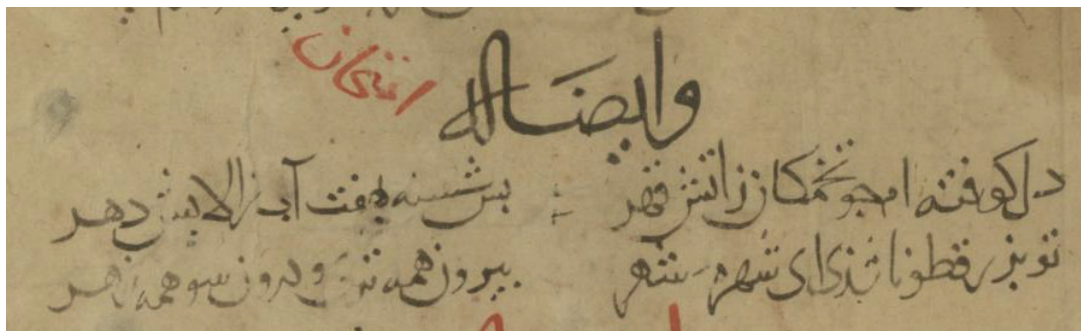 وایضا له
دل کوفته ام چو تخمکان ز اتش قهر بس شسته بهفت آب ز الایش دهر
تو بزر قطونا شذی ای شهره شهر بیرون همه تری و درون سو همه زهر